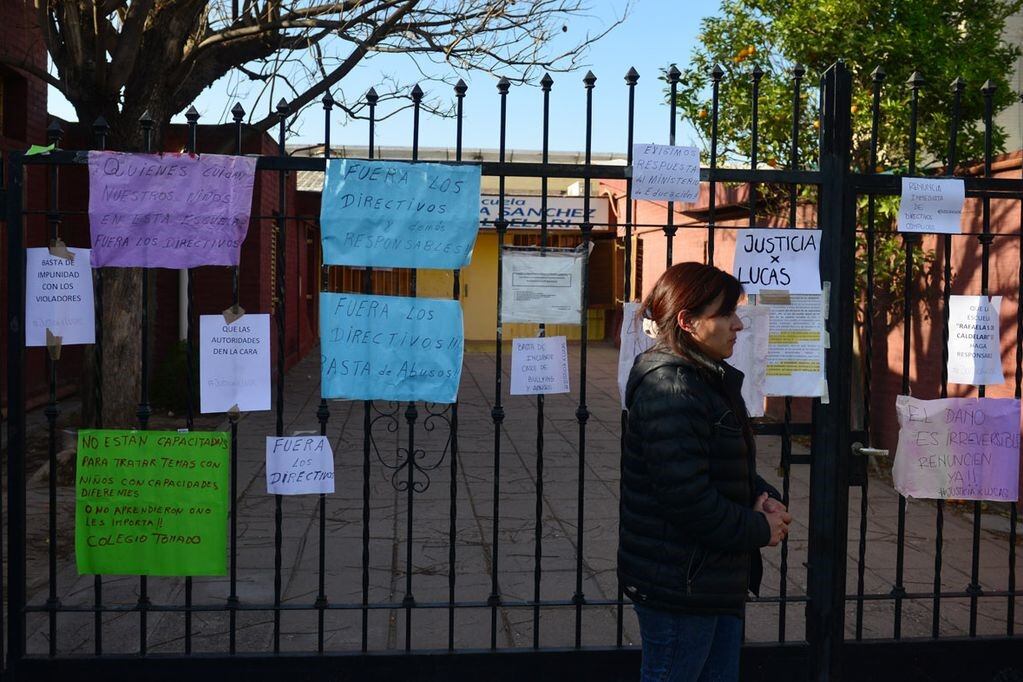 QUIENES CUIDAN
NUESTROS NIÑOS
EN ESTA ESCUELA
FUERA LOS DIRECTIVOS
FUERA LOS
DIRECTIVOS
y demás
RESPONSABLES!!
EXIGIMOS
RESPUESTA
al MINISTERIO
de EDUCACIÓN
RENUNCIA
INMEDIATA
DE
DIRECTIVOS
COMPLICES
cuela
A SANCHEZ
BASTA DE
IMPUNIDAD
CON LOS
VIOLADORES
JUSTICIA
x
LUCAS
QUE LAS
AUTORIDADES
DEN LA CARA
FUERA LOS
DIRECTIVOS!!!
BASTA de ABUSOS!!
BASTA DE
CASOS DE
BULLYING
Y ABUSOS
QUE L
ESCUEL
"RAFAELA S
CALDELAR
HAGA
RESPONSA
NO ESTAN CAPACITADAS
PARA TRATAR TEMAS CON
NIÑOS CON CAPACIDADES
DIFERENTES
O NO APRENDIERON O NO
LES IMPORTA!!
COLEGIO TOMADO
FUERA
LOS
DIRECTIVOS
EL DAÑO
ES IRREVERSIBLE
RENUNCIEN
YA!!
#JUSTICIAXLUCAS